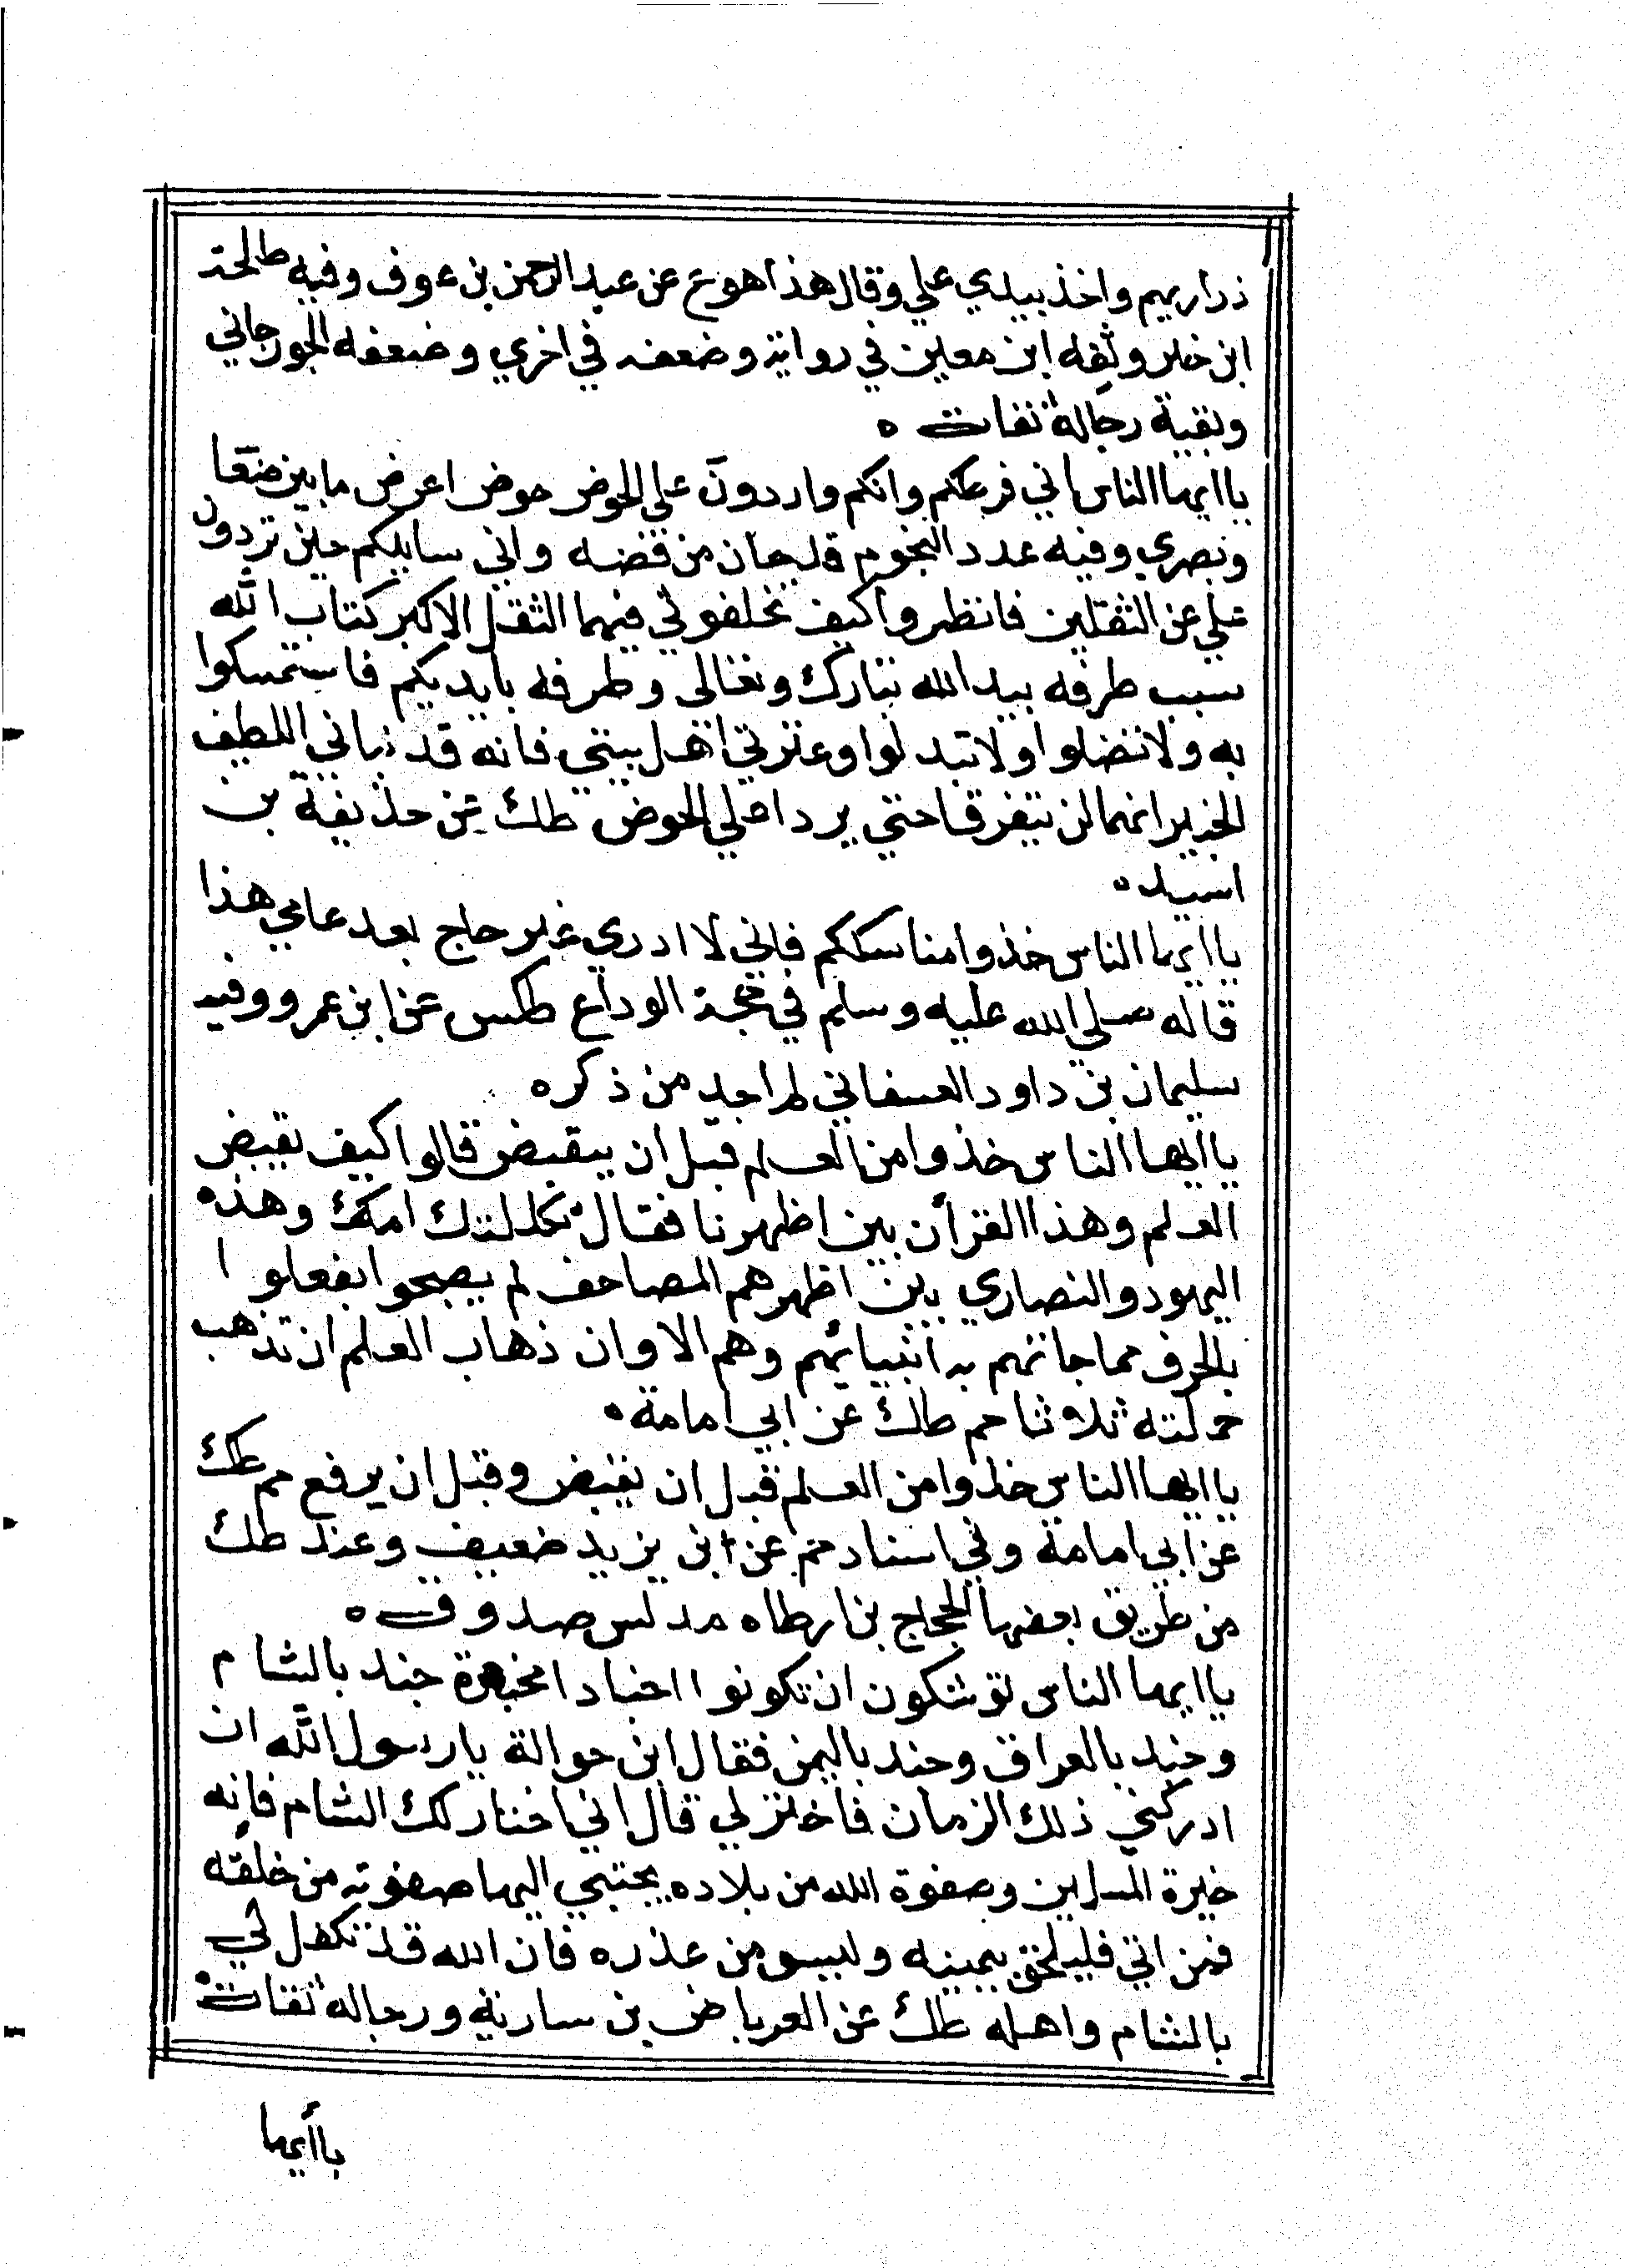 ذراريهم واخذ بيدي علي وقال هذا هو ع عن عبد الرحمن بن عوف وفيه طلحة
ابن خير وثقه ابن معين في رواية وضعفه في اخري وضعفه الجوزجاني
وبقية رجاله ثقات ه
يا ايها الناس اني فرطكم وانكم واردون علي الحوض حوض اعرض ما بين صنعا
وبصري وفيه عدد النجوم قدحان من فضه واني سايلكم حين تردون
علي عن الثقلين فانظروا كيف تخلفوني فيهما الثقل الاكبر كتاب الله
سبب طرفه بيد الله تبارك وتعالى وطرفه بايديكم فاستمسكوا
به ولا تضلوا ولا تبدلوا وعترتي اهل بيتي فانه قد نباني اللطيف
الخبير انهما لن يتفرقا حتي يردا علي الحوض طك عن حذيفة بن
اسيد ه
يا ايها الناس خذوا مناسككم فاني لا ادري غير حاج بعد عامي هذا
قاله صلي الله عليه وسلم في حجة الوداع طكس عن ابن عمرو وفيه
سليمان بن داود العسفاني لم اجد من ذكره
يا ايها الناس خذوا من العلم قبل ان يقبض قالوا كيف يقبض
العلم وهذا القرأن بين اظهرنا فقال ثكلتك امك وهذه
اليهود والنصاري بين اظهرهم المصاحف لم يصبحوا يفعلوا
بالحرف مما جاتهم به انبيائهم وهم الا وان ذهاب العلم ان تذهب
حملته ثلاثا حم طك عن ابي امامة ه
يا ايها الناس خذوا من العلم قبل ان يقبض وقبل ان يرفع حم طك
عن ابي امامة وفي اسناد حم عن ابن يزيد ضعيف وعند طك
من طريق بعضها الحجاج بن ارطاه مدلس صدوق ه
يا ايها الناس توشكون ان تكونوا اجنادا مجندة جند بالشام
وجند بالعراق وجند باليمن فقال ابن حوالة يا رسول الله ان
ادركني ذلك الزمان فاختر لي قال اني اختار لك الشام فانه
خيرة المسلمين وصفوة الله من بلاده يجتبي اليها صفوته من خلقه
فمن ابي فليلحق بيمينه وليسق من غدره فان الله قد تكفل لي
بالشام واهله طك عن العرباض بن سارية ورجاله ثقات ه
يا أيها